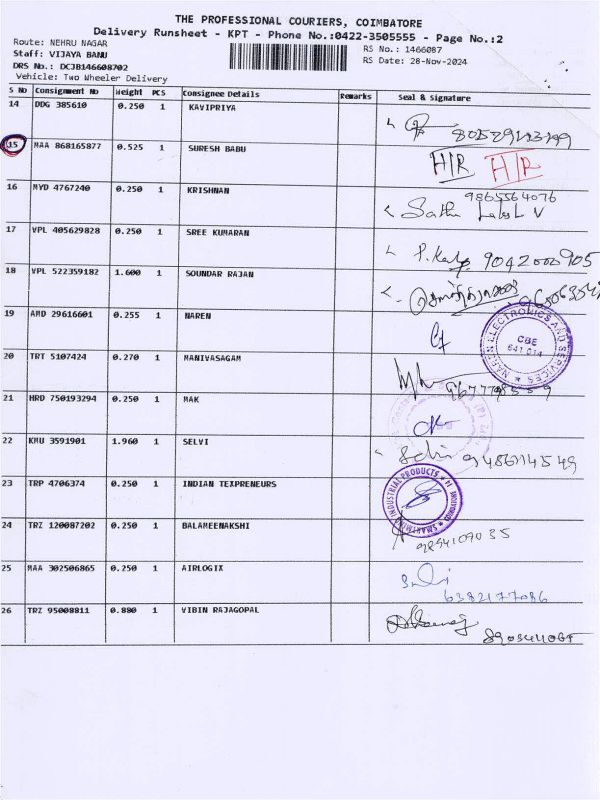 THE PROFESSIONAL COURIERS, COIMBATORE
Delivery Runsheet - KPT - Phone No.:0422-3505555 - Page No.:2
Route: NEHRU NAGAR
Staff: VIJAYA BANU
DRS No.: DCJB146608702
Vehicle: Two Wheeler Delivery
RS No.: 1466087
RS Date: 28-Nov-2024
S No Consignment No Weight PCS Consignee Details Remarks Seal & signature
14 DDG 385610 0.250 1 KAVIPRIYA
15 MAA 868165877 0.525 1 SURESH BABU H/R H/R
16 MYD 4767240 0.250 1 KRISHNAN 9865564076
17 VPL 405629828 0.250 1 SREE KUMARAN 9042000905
18 VPL 522359182 1.600 1 SOUNDAR RAJAN
19 AMD 29616601 0.255 1 NAREN
NAREN ELECTRONICS AND SERVICES
CBE
641 014
20 TRT 5107424 0.270 1 MANIVASAGAM
21 HRD 750193294 0.250 1 MAK
22 KMU 3591901 1.960 1 SELVI
23 TRP 4706374 0.250 1 INDIAN TEXPRENEURS
INDUSTRIAL PRODUCTS
24 TRZ 120087202 0.250 1 BALAMEENAKSHI
25 MAA 302506865 0.250 1 AIRLOGIX
6382177086
26 TRZ 95008811 0.880 1 VIBIN RAJAGOPAL